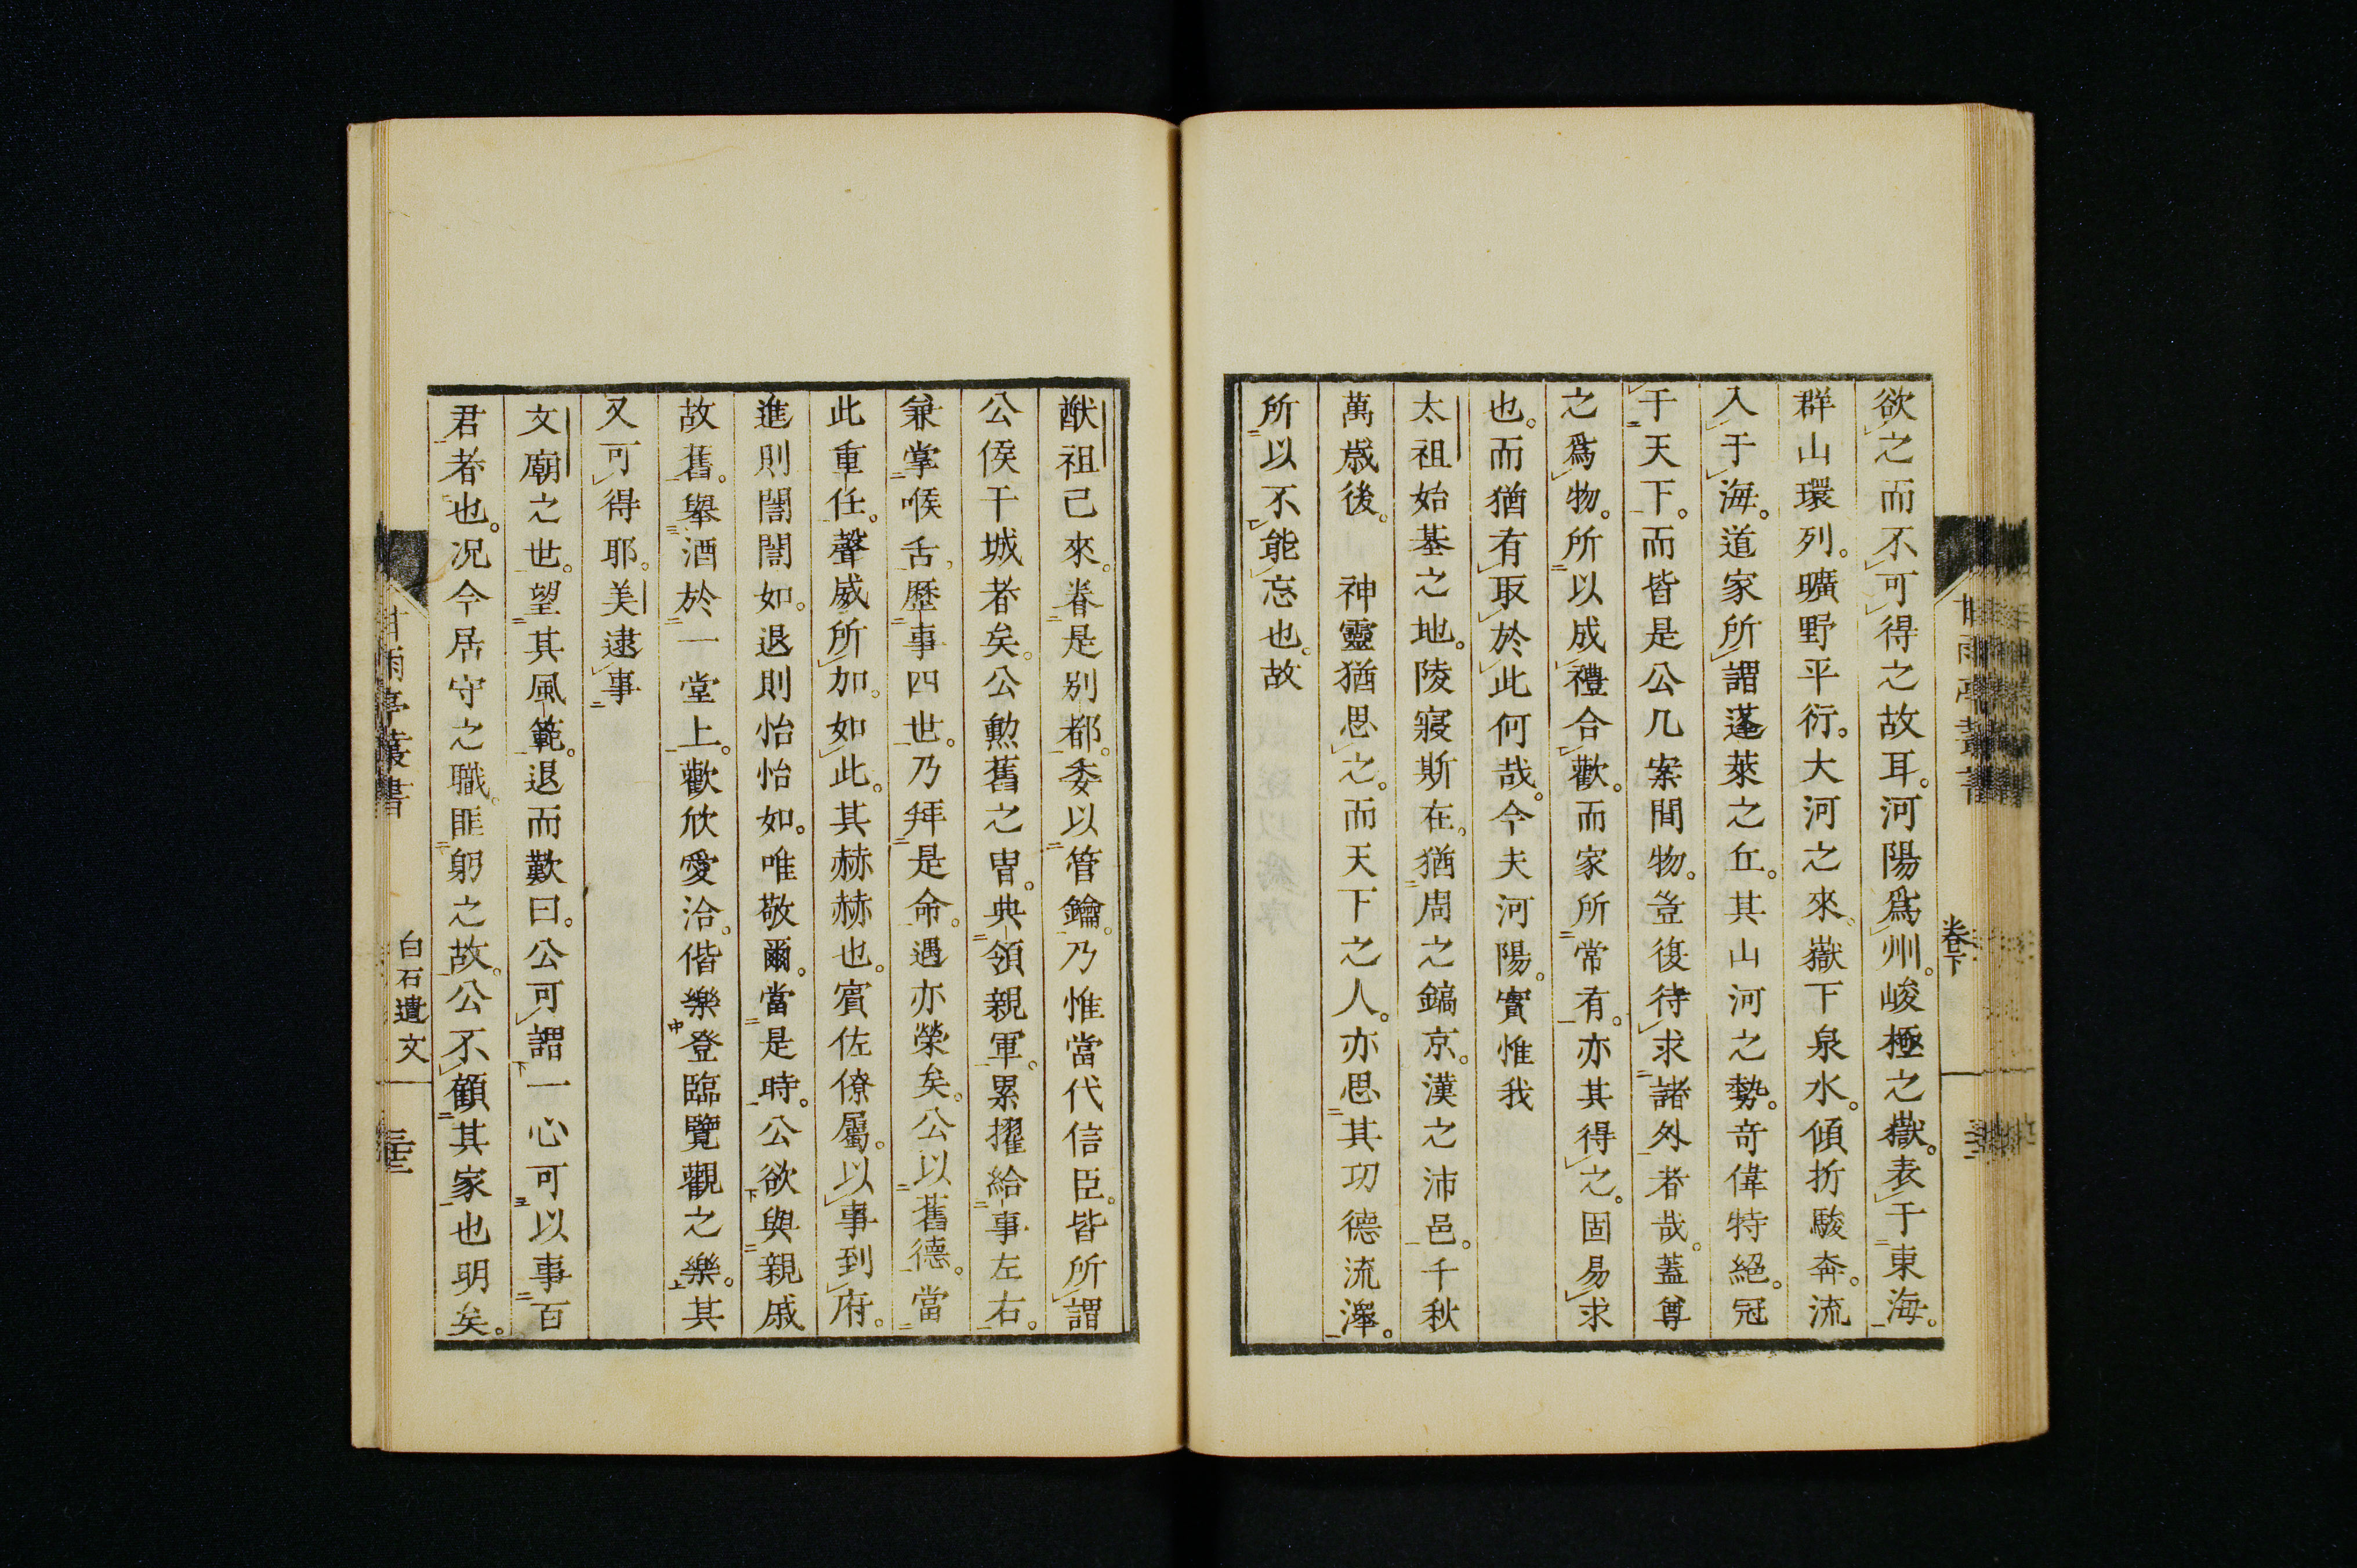 欲之而不可得之故耳。河陽爲州。峻極之嶽。表于東海。
群山環列。曠野平衍。大河之來、嶽下泉水。傾折駿奔。流
入于海。道家所謂蓬萊之丘。其山河之勢。奇偉特絕。冠
于天下。而皆是公几案間物。豈復待求諸外者哉。蓋尊
之爲物。所以成禮合歡。而家所常有。亦其得之。固易求
也。而猶有取於此何哉。今夫河陽。實惟我
太祖始基之地。陵寢斯在。猶周之鎬京。漢之沛邑。千秋
萬歲後。 神靈猶思之。而天下之人。亦思其功德流澤。
所以不能忘也。故
卷下
猷祖已來。眷是別都。委以管鑰。乃惟當代信臣。皆所謂
公侯干城者矣。公勲舊之冑。典領親軍。累擢給事左右。
兼掌喉舌、歷事四世。乃拜是命。遇亦榮矣。公以舊德。當
此重任。聲威所加。如此。其赫赫也。賓佐僚屬。以事到府。
進則誾誾如。退則怡怡如。唯敬爾。當是時。公欲與親戚
故舊。舉酒於一堂上。歡欣愛洽。偕樂登臨覽觀之樂。其
又可得耶。美逮事
文廟之世。望其風範。退而歎曰。公可謂一心可以事百
君者也。况今居守之職。匪躬之故。公不顧其家也明矣。
甘雨亭叢書
白石遺文